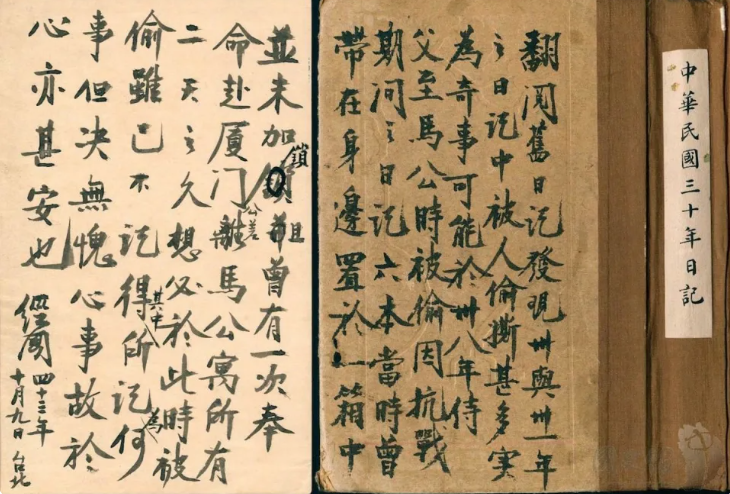 中華民國三十年日記
翻閱舊日記發現卅與卅一年
之日記中被人偷撕甚多實
為奇事可能於卅八年侍
父至馬公時被偷因抗戰
期间之日記六本當時曾
帶在身邊置於一箱中
並未加鎖且曾有一次奉
命赴厦门公差離馬公寓所有
二天之久想必於此時被
偷雖已不記得其中所記為何
事但决無愧心事故於
心亦甚安也
經國
四十三年
十月九日 台北